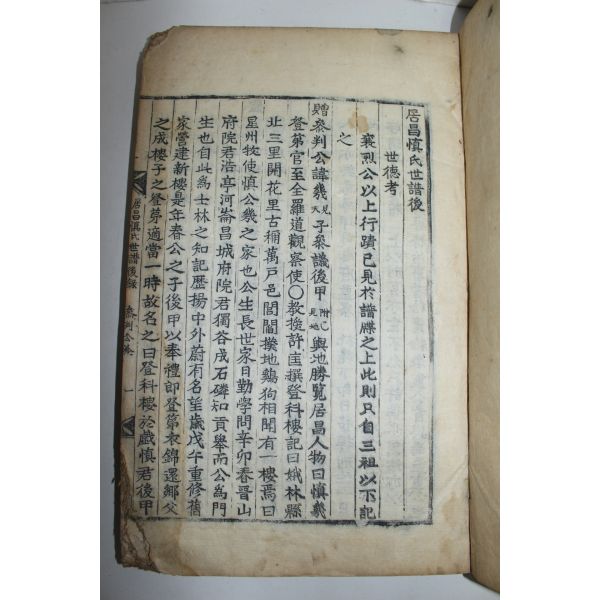 居昌愼氏世譜後
世德考
襄烈公以上行蹟已見於譜牒之上此則只自三祖以下記
之
贈參判公諱幾見天子參議後甲附已見地輿地勝覽居昌人物曰愼幾
登第官至全羅道觀察使○敎授許撰登科樓記曰娥林縣
北三里開花里古稱萬戶邑閭閻撲地鷄狗相聞有一樓焉曰
星州牧使愼公幾之家也公生長世家日勤學問辛卯春晋山
府院君浩亭河崙昌城府院君獨谷成石磷知貢擧而公爲門
生也自此爲士林之知記歷揚中外蔚有名望歲戊午重修舊
家營建新樓是年春公之子後甲以奉禮郎登第衣錦還鄕父
之成樓子之登第適當一時故名之曰登科樓於戱愼君後甲
居昌愼氏世譜後錄 參判公 一